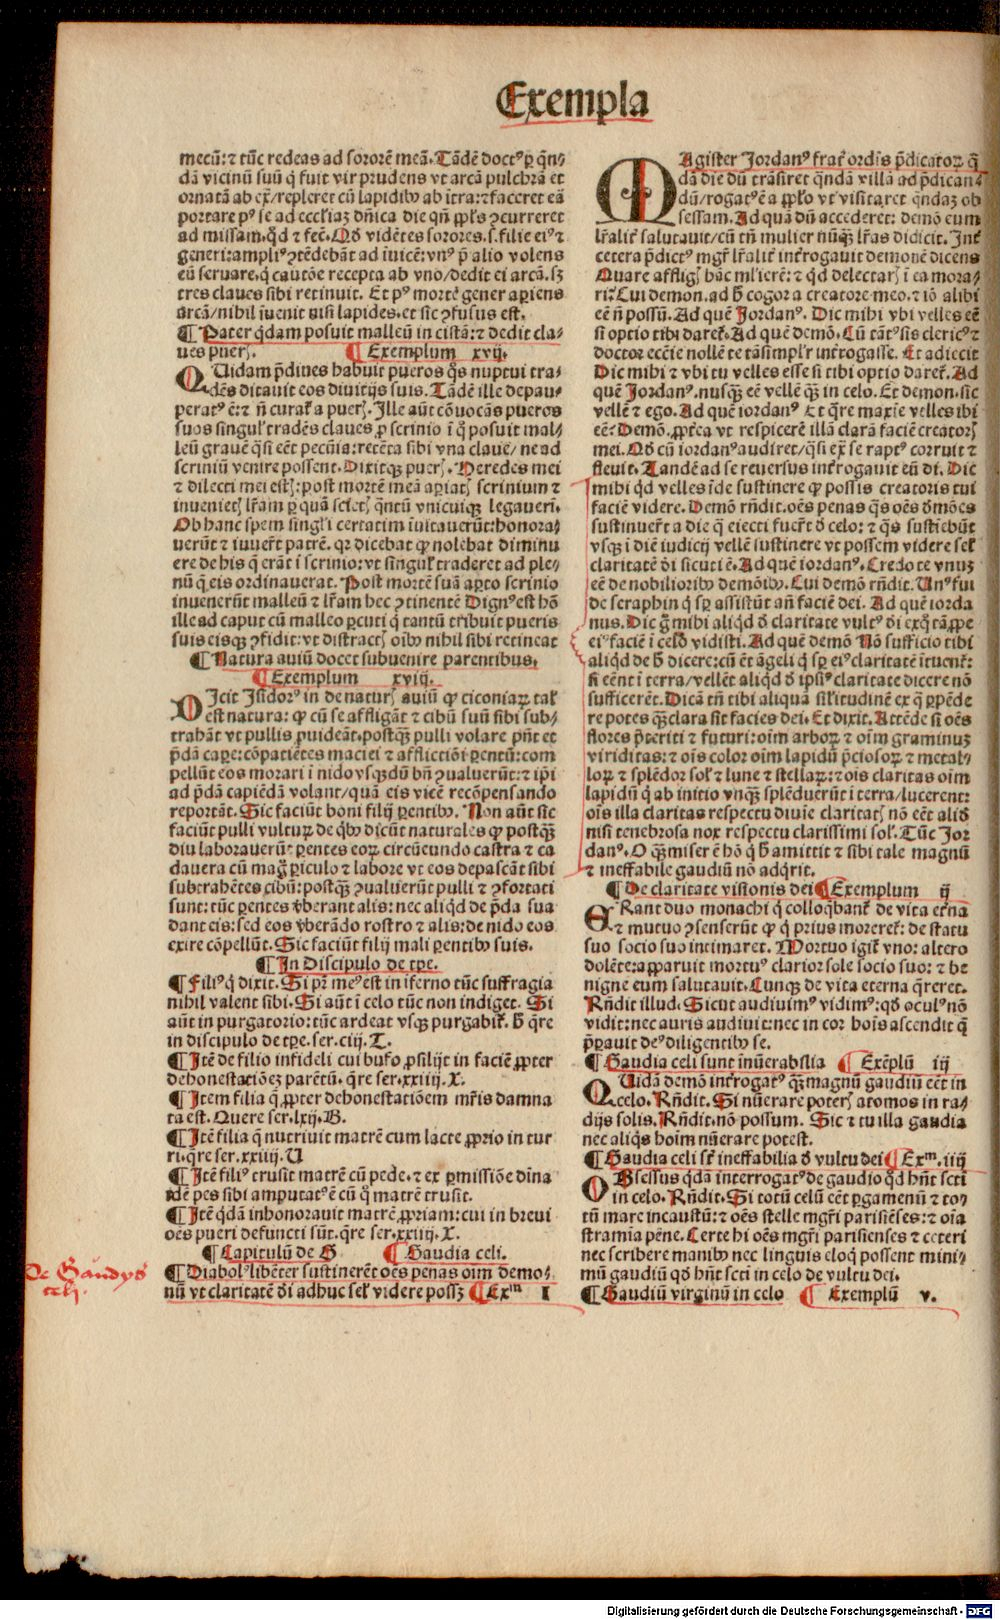 Exempla
mecū: ⁊ tūc redeas ad sororē meā. Tādē doctꝰ ꝑ qn̄/
dā vicinū suū q̇ fuit vir prudens vt arcā pulchrā et
ornatā ab ex̄/ repleret cū lapidibꝰ ab ītra: ⁊ faceret eā
portare pꝰ se ad eccl̄iaz dn̄ica die qn̄ ppl̄s ꝯcurreret
ad missam. qd̄ ⁊ fec̄. Qd̄ vidētes sorores .s. filie eiꝰ ⁊
generi: ampliꝰ ꝯtēdebāt ad īuicē: vnꝰ p̄ alio volens
eū seruare. q̇ cautōe recepta ab vno/ dedit ei arcā. sꝫ
tres claues sibi retinuit. Et pꝰ mortē gener aꝑiens
arcā/ nihil īuenit nisi lapides. et sic ꝯfusus est.
¶ Pater qdam posuit malleū in cista: ⁊ dedit cla-
ues puerꝭ. ¶ Exemplum xvij.
QUidam p̄dines habuit pueros q̄s nuptui tra/
dēs ditauit eos diuitijs suis. Tādē ille depau/
peratꝰ ē: ⁊ n̄ curat᷑ a puerꝭ. Ille aūt cōuocās pueros
suos singul᷑ tradēs claues ꝓ scrinio ī q̇ posuit mal/
leū grauē q̄si eēt pecūia: retēta sibi vna claue/ ne ad
scriniū venire possent. Dixitqꝫ puerꝭ. Heredes mei
⁊ dilecti mei estꝭ: post mortē meā aꝑiatꝭ scrinium ⁊
inuenietꝭ lr̄am ꝑ quā scietꝭ qn̄tū vnicuiqꝫ legauerī.
Ob hanc spem singl̓i certatim īuitauerūt: honora/
uerūt ⁊ iuuer̄t patrē. qꝛ dicebat ꝙ nolebat diminu
ere de his q̄ erāt ī scrinio: vt singul᷑ traderet ad ple/
nū q̄ eis ordinauerat. Post mortē suā aꝑto scrinio
inuenerūt malleū ⁊ lr̄am hec ꝯtinentē Dignꝰ est hō
ille ad caput cū malleo ꝑcuti q̇ tantū tribuit pueris
suis eisqꝫ ꝯfidit: vt distractꝭ oībꝰ nihil sibi retineat
¶ Natura auiū docet subuenire parentibus.
¶ Exemplum xviij.
DIcit Isidorꝰ in de naturꝭ auiū ꝙ ciconiaꝝ tal᷑
est natura: ꝙ cū se affligāt ⁊ cibū suū sibi sub/
trahāt vt pullis ꝓuideāt. postqꝫ pulli volare pn̄t et
p̄dā cape: cōpatiētes maciei ⁊ afflictiōi ꝑentū: com
pellūt eos morari ī nido vsqꝫ dū bn̄ ꝯualuerūt: ⁊ ip̄i
ad p̄dā capiēdā volant/ quā eis vicē recōpensando
reportāt. Sic faciūt boni filij ꝑentibꝰ. Non aūt sic
faciūt pulli vultuꝝ de q̇bꝰ dicūt naturales ꝙ postqꝫ
diu laborauerūt ꝑentes eoꝝ circūeundo castra ⁊ ca
dauera cū mag̊ ꝑiculo ⁊ labore vt eos depascāt sibi
subtrahētes cibū: postqꝫ ꝯualuerūt pulli ⁊ ꝯfortati
sunt: tūc ꝑentes v̄berant alis: nec aliqd de p̄da sua
dant eis: sed eos v̄berādo rostro ⁊ alis: de nido eos
exire cōpellūt. Sic faciūt filij mali ꝑentibꝰ suis.
¶ In Discipulo de tꝑe.
¶ Filiꝰ q̇ dixit. Si pr̄ meꝰ est in īferno tūc suffragia
nihil valent sibi. Si aūt ī celo tūc non indiget. Si
aūt in purgatorio: tūc ardeat vsqꝫ purgabit᷑. h̄ q̄re
in discipulo de tꝑe. ser. ciij. T.
¶ Itē de filio infideli cui bufo ꝓsilijt in faciē ꝓpter
dehonestatiōeꝫ parētū. q̄re ser. xxiiij. X.
¶ Item filia q̄ ꝓpter dehonestatiōem mr̄is damna
ta est. Quere ser. lxij. B.
¶ Itē filia q̄ nutriuit matrē cum lacte ꝓprio in tur
ri. q̄re ser. xxiiij. U
¶ Itē filiꝰ trusit matrē cū pede. ⁊ ex ꝑmissiōe diīna
idē pes sibi amputatꝰ ē cū q̇ matrē trusit.
¶ Itē qdā inhonorauit matrē ꝓpriam: cui in breui
oēs pueri defuncti sūt. q̄re ser. xxiiij. X.
¶ Capitulū de G ¶ Gaudia celi.
De Gaudys
celj.
¶ Diabolꝰ libēter sustineret oēs penas oīm demo-
nū vt claritatē dei adhuc sel᷑ videre possꝫ ¶ Exm I
MAgister Jordanꝰ frat᷑ ordīs p̄dicatoꝝ q̄
dā die dū trāsiret qn̄dā villā ad p̄dican/
dū/ rogatꝰ ē a ppl̄o vt visitaret qn̄daꝫ ob
sessam. Ad quā dū accederet: demō eum
lr̄alit᷑ salutauit/ cū tn̄ mulier nūqꝫ lr̄as didicit. Int᷑
cetera p̄dictꝰ mgr̄ lr̄alit᷑ int᷑rogauit demonē dicens
Quare affligꝭ hāc ml̓ierē: ⁊ qd delectarꝭ ī ea mora/
ri? Cui demon. ad h̄ cogor a creatore meo. ⁊ iō alibi
eē n̄ possū. Ad quē Jordanꝰ. Dic mihi vbi velles eē
si optio tibi daret᷑. Ad quē demō. Cū tātꝰ sis clericꝰ ⁊
doctor ecēie nollē te tā simpl̓r int᷑rogasse. Et adiecit
Dic mihi ⁊ vbi tu velles esse si tibi optio daret᷑. Ad
quē Jordanꝰ. nusqꝫ eē vellē qꝫ in celo. Et demon. sic
vellē ⁊ ego. Ad quē iordanꝰ Et q̄re maxīe velles ibi
eē? Demō. ꝓpt᷑ea vt respicerē illā clarā faciē creatorꝭ
mei. Qd̄ cū iordanꝰ audiret/ q̄si ex̄ se raptꝰ corruit ⁊
fleuit. Tandē ad se reuersus int᷑rogauit eū dī. Dic
mihi qd velles īde sustinere ꝙ possis creatoris tui
faciē videre. Demō rn̄dit. oēs penas q̄s oēs dmōes
sustinuer̄t a die q̄ eiecti fuer̄t d̄ celo: ⁊ q̄s sustīebūt
vsqꝫ ī diē iudicij vellē sustinere vt possem videre sel᷑
claritatē dī sicuti ē. Ad quē iordanꝰ. Credo te vnuꝫ
eē de nobilioribꝰ demōibꝰ. Cui demō rn̄dit. Unꝰ fui
de seraphin q̇ sꝑ assistūt an̄ faciē dei. Ad quē iorda
nus. Dic g̊ mihi aliqd d̄ claritate vultꝰ dī exq̊ tā ꝓpe
eiꝰ faciē ī celo vidisti. Ad quē demō Nō sufficio tibi
aliqd de h̄ dicere: cū ēt āgeli q̇ sꝑ eiꝰ claritatē ītuent᷑:
si eēnt ī terra/ vellēt aliqd d̄ ipsiꝰ claritate dicere nō
sufficerēt. Dicā tn̄ tibi aliquā sil̓itudinē ex q̄ ꝑpēde
re potes qꝫ clara sit facies dei. Et dixit. Attēde si oēs
flores p̄teriti ⁊ futuri: oīm arboꝝ ⁊ oīm graminuꝫ
viriditas: ⁊ oīs color oīm lapidū p̄ciosoꝝ ⁊ metal/
loꝝ ⁊ splēdor sol᷑ ⁊ lune ⁊ stellaꝝ: ⁊ oīs claritas oīm
lapidū q̄ ab initio vnqꝫ splēduerūt ī terra/ lucerent:
oīs illa claritas respectu diuīe claritatꝭ nō eēt aliud
nisi tenebrosa nox respectu clarissimi sol᷑. Tūc Jor
danꝰ. O qꝫ miser ē hō q̇ h̄ amittit ⁊ sibi tale magnū
⁊ ineffabile gaudiū nō adq̇rit.
¶ De claritate visionis dei ¶ Exemplum ij
ERant duo monachi q̇ colloq̄bant᷑ de vita et᷑na
⁊ mutuo ꝯsenserūt ꝙ q̇ prius moreret᷑: de statu
suo socio suo intimaret. Mortuo igit᷑ vno: altero
dolēte: apparuit mortuꝰ clarior sole socio suo: ⁊ be
nigne eum salutauit. Cunqꝫ de vita eterna q̄reret.
Rn̄dit illud. Sicut audiuimꝰ vidimꝰ: qd̄ oculꝰ nō
vidit: nec auris audiuit: nec in cor hoīs ascendit q̄
p̄parauit deꝰ diligentibꝰ se.
¶ Gaudia celi sunt inn̄erabilia ¶ Exēplū iij
QUidā demō int᷑rogatꝰ qꝫ magnū gaudiū eēt in
celo. Rn̄dit. Si nūerare poterꝭ atomos in ra/
dijs solis. Rn̄dit. nō possum. Sic ⁊ tu illa gaudia
nec aliq̄s hoīm nūerare potest.
¶ Gaudia celi sūt ineffabilia d̄ vultu dei ¶ Exm. iiij
OBsessus qdā interrogatꝰ de gaudio qd̄ hn̄t scti
in celo. Rn̄dit. Si totū celū eēt ꝑgamenū ⁊ to/
tū mare incaustū: ⁊ oēs stelle mgr̄i parisiēses: ⁊ oīa
stramia pēne. Certe hi oēs mgr̄i parisienses ⁊ ceteri
nec scribere manibꝰ nec linguis eloq̇ possent mini/
mū gaudiū qd̄ hn̄t scti in celo de vultu dei.
¶ Gaudiū virginū in celo ¶ Exemplū v.
Digitalisierung gefördert durch die Deutsche Forschungsgemeinschaft - DFG